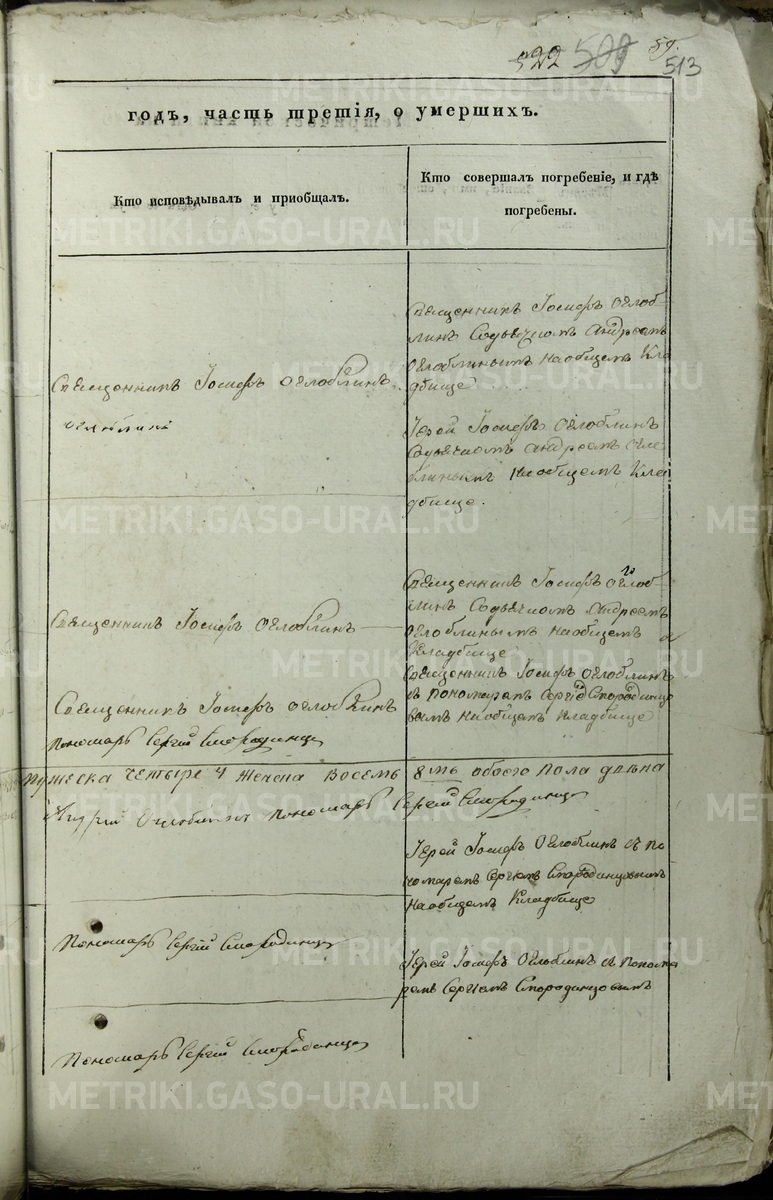 522 509 59.
513
годъ, часть третія, о умершихъ.
Кто исповѣдывалъ и приобщалъ.
Кто совершалъ погребеніе, и гдѣ
погребены.
Священникъ Іосифъ Оглоблинъ
Священникъ Іосифъ Оглоб-
линъ Содьячкомъ Андреемъ
Оглоблинымъ наобщемъ Кла
дбище
Іерей Іосифъ Оглоблинъ
Содьячкомъ Андреемъ Огло
блинымъ наобщемъ Кла
дбище.
Священникъ Іосифъ Оглоблинъ
Священникъ Іосифъ Оглоб
линъ Содьячкомъ Андреемъ
Оглоблинымъ наобщемъ
Кладбище
Священникъ Іосифъ Оглоблинъ
Пономарь Сергей Смородинцо
Священникъ Іосифъ Оглоблинъ
съ пономаремъ Сергіемъ Смородинцо
вымъ наобщемъ Кладбище
Мужеска четыре 4 Женска восемь 8мь обоего пола
Андрей Оглоблинъ Пономарь Сергей Смородинцо
Іерей Іосифъ Оглоблинъ съ по
номаремъ Сергіемъ Смородинцовымъ
наобщемъ Кладбище
Пономарь Сергей Смородинцо
Іерей Іосифъ Оглоблинъ съ понома
ремъ Сергіемъ Смородинцовымъ
Пономарь Сергей Смородинцо
METRIKI.GASO-URAL.RU